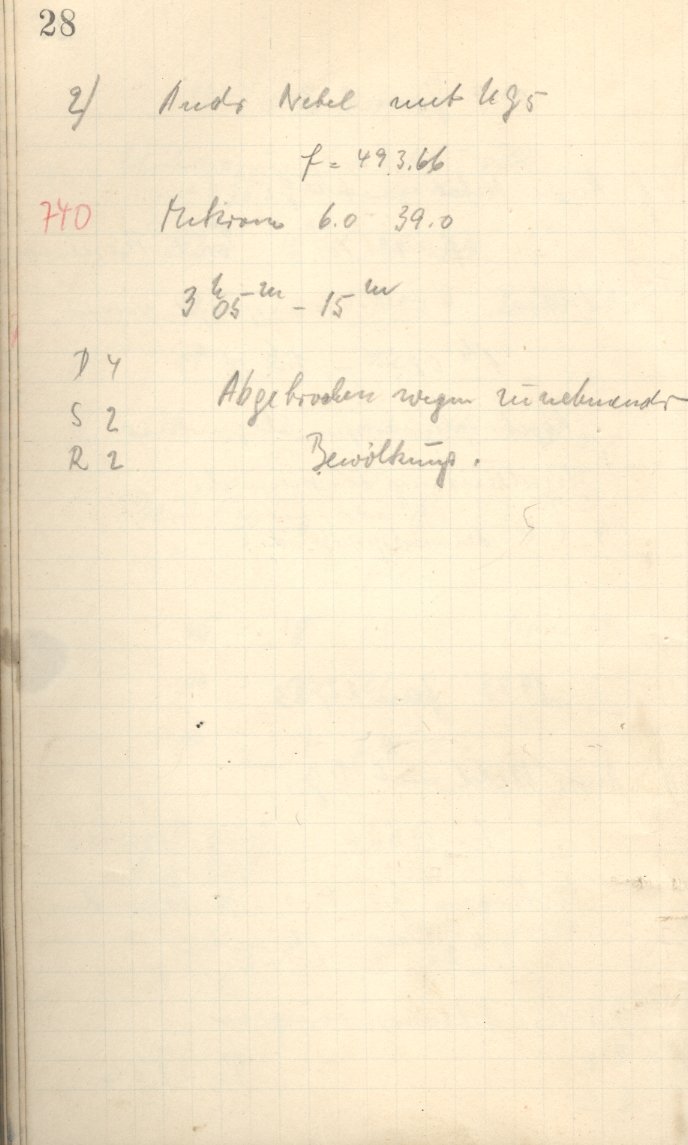 28
2) Andr Nebel mit UG5
f = 493.66
740 Mikrom 6.0 39.0
3h 05m - 15m
D 4
Abgebrochen wegen zunehmender
S 2
R 2 Bewölkung.